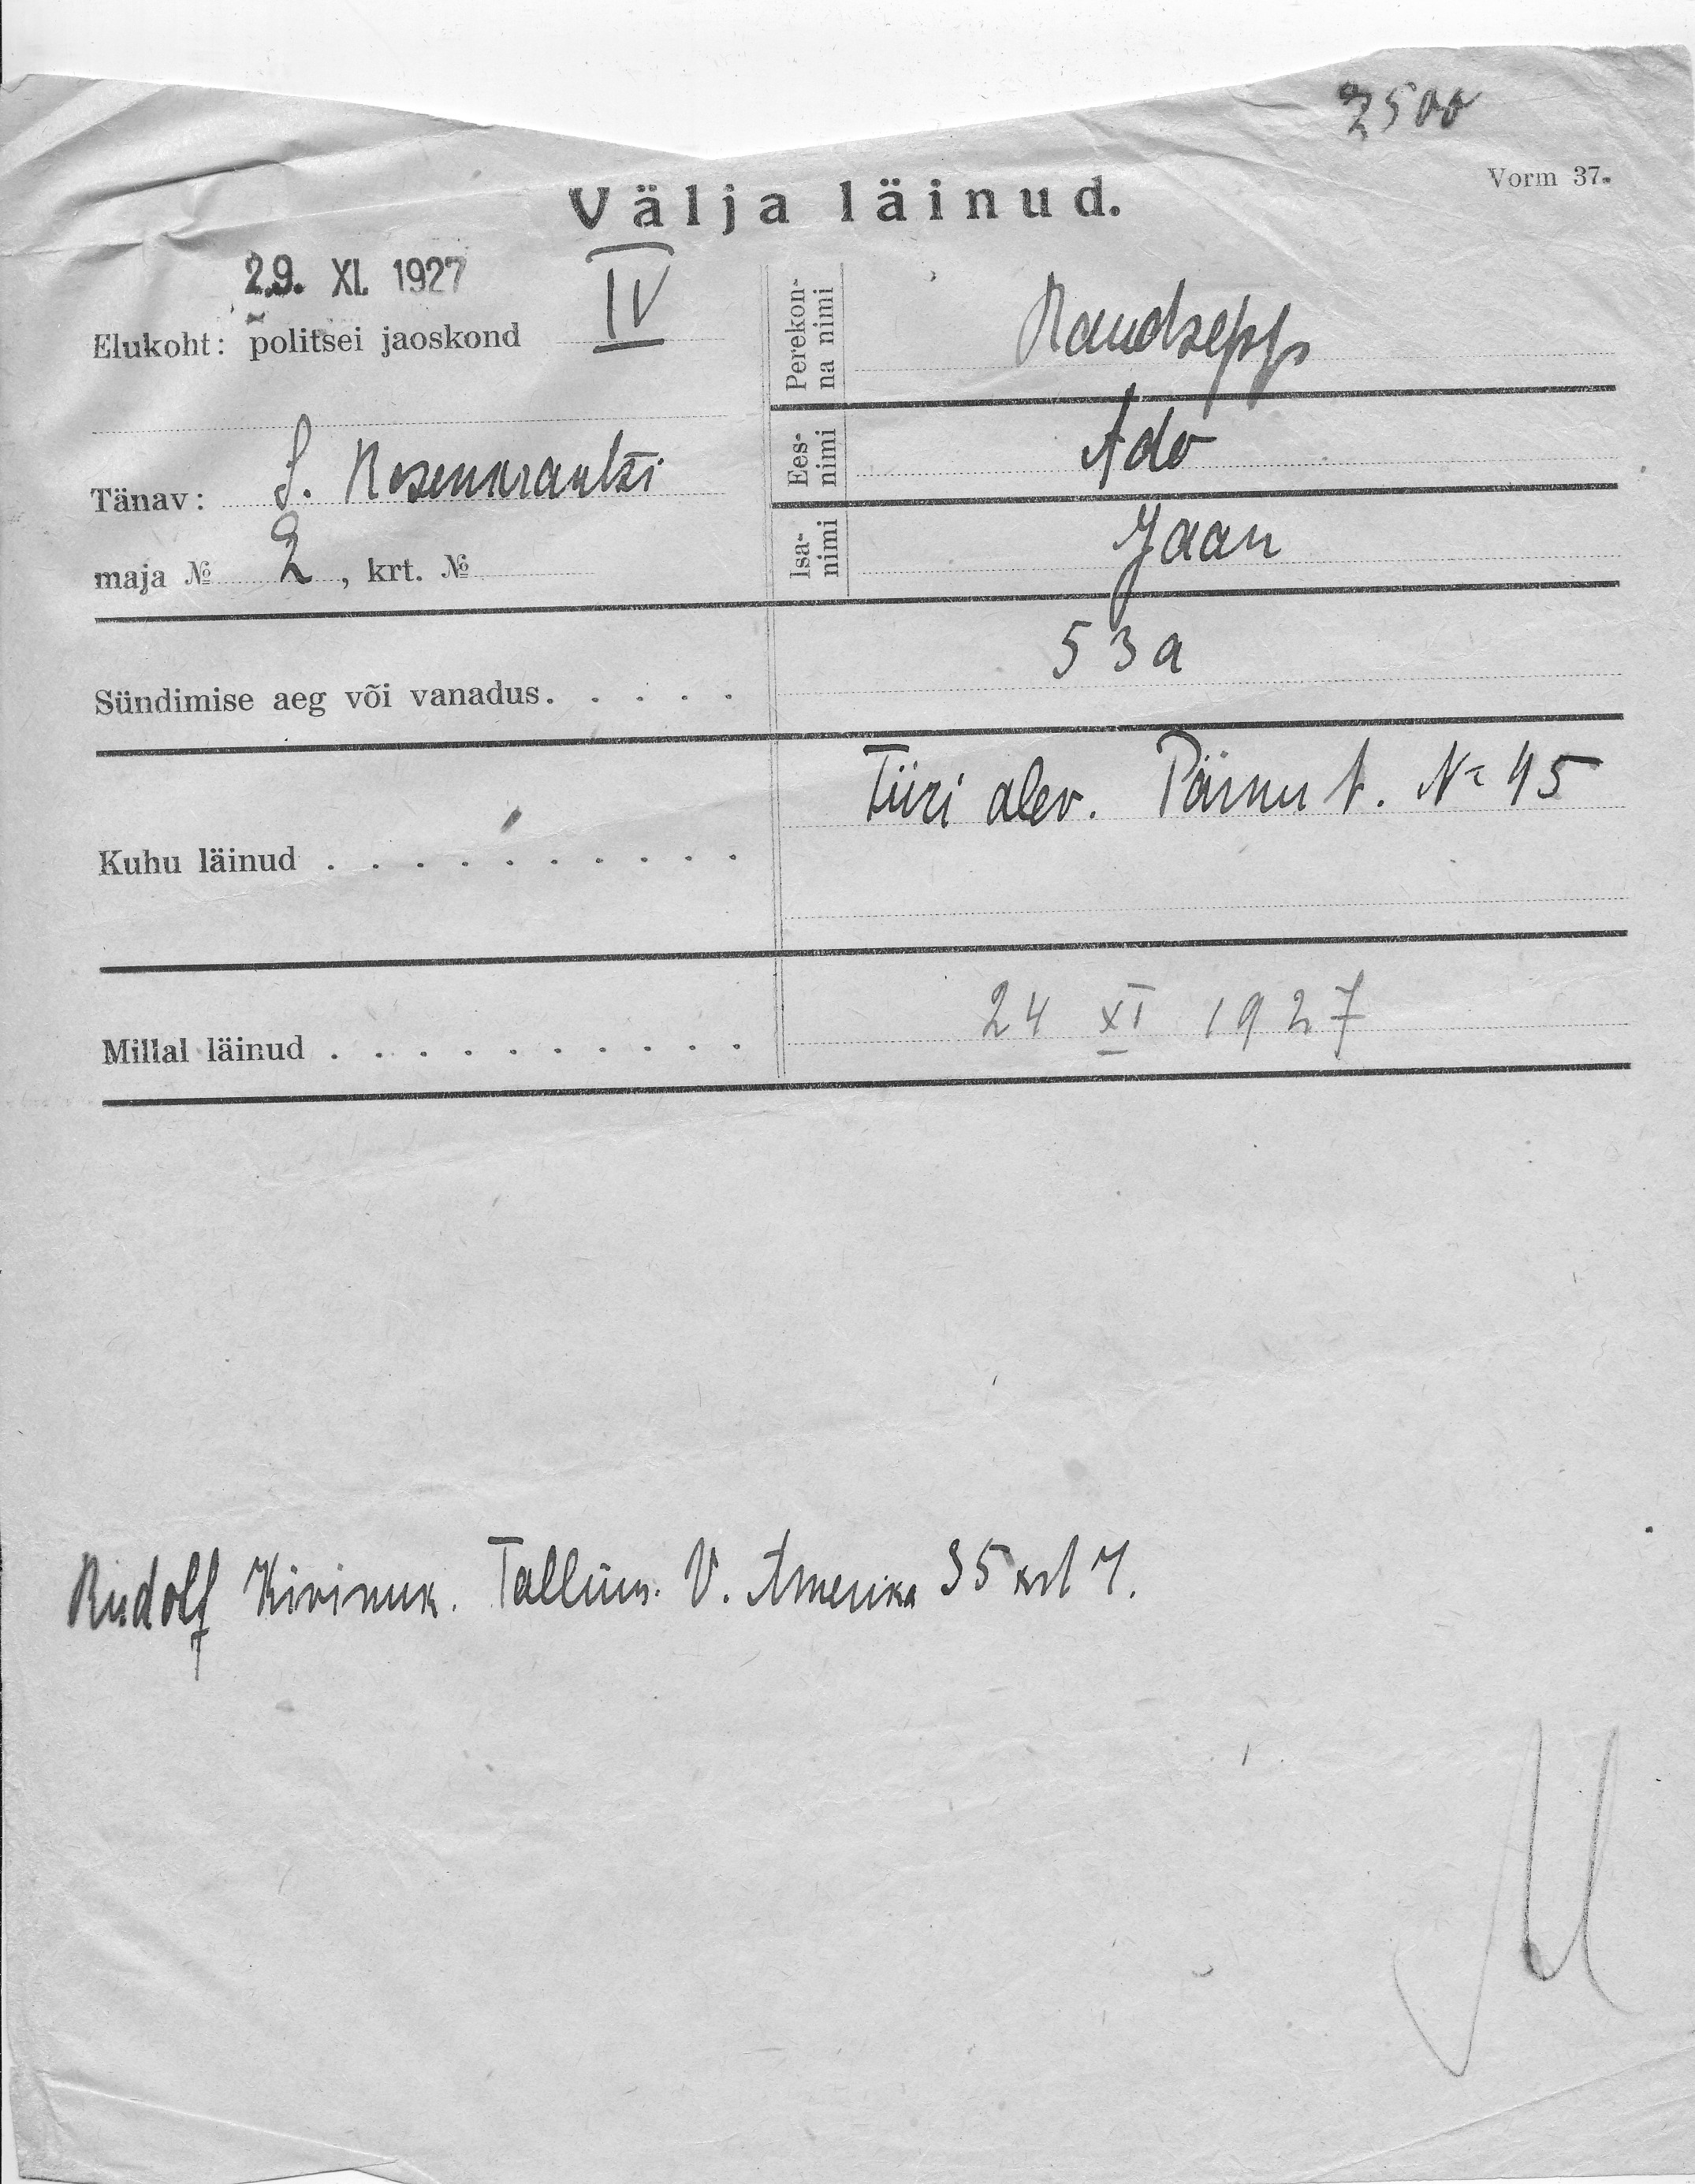 2500
Vorm 37.
Välja läinud.
29. XI. 1927
Elukoht: politsei jaoskond IV
Tänav: S. Rosenkrantsi
maja № 2, krt. №
Perekon-
na nimi Raudsepp
Ees-
nimi Ado
Isa-
nimi Jaan
Sündimise aeg või vanadus. . . . . 53 a
Kuhu läinud . . . . . . . . . . Türi alev. Pärnu t. № 45
Millal läinud . . . . . . . . . . 24 XI 1927
Rudolf Kivinuk. Tallinn. V. Amerika 35 krt 7.